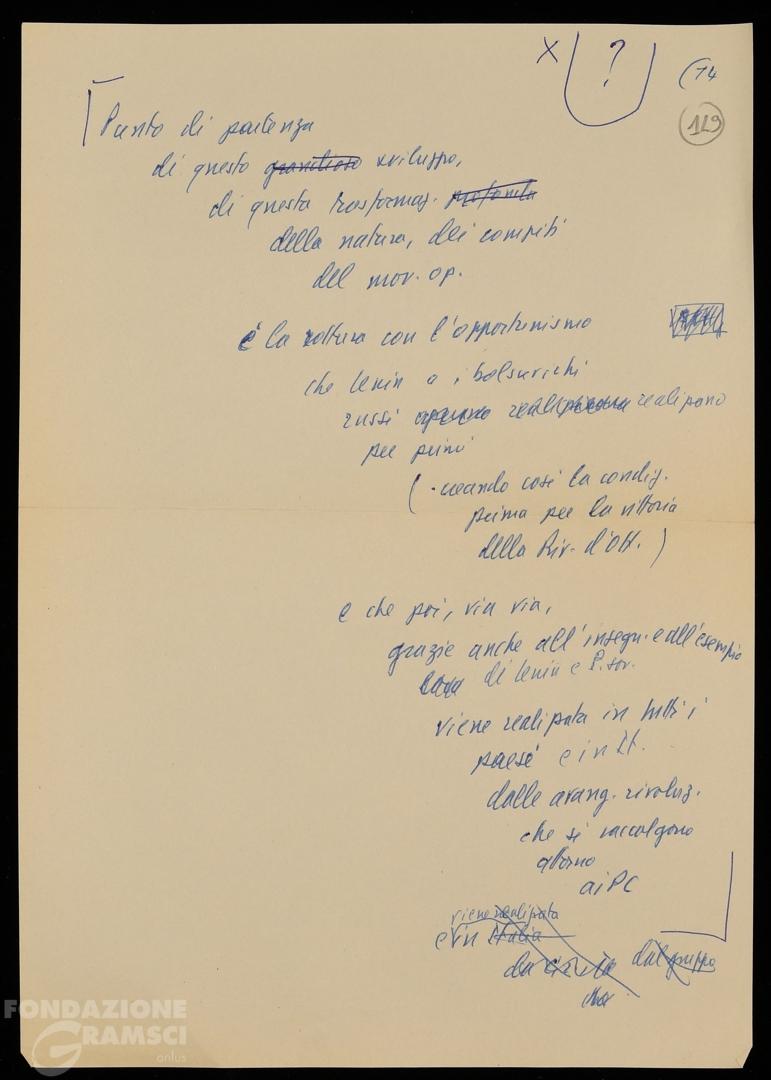 X ? (74
129
Punto di partenza
di questo grandioso sviluppo,
di questa trasformaz. profonda
della natura, dei compiti
del mov. op.
è la rottura con l'opportunismo
che Lenin e i bolscevichi
russi realizzano
per primi
(creando così la condiz.
prima per la vittoria
della Riv. d'Ott.)
e che poi, via via,
grazie anche all'insegn. e all'esempio
di Lenin e P. sov.
viene realizzata in tutti i
paesi e in It.
dalle avang. rivoluz.
che si raccolgono
attorno
ai PC
viene realizzata
e in Italia
da dal gruppo
che
FONDAZIONE
GRAMSCI
onlus